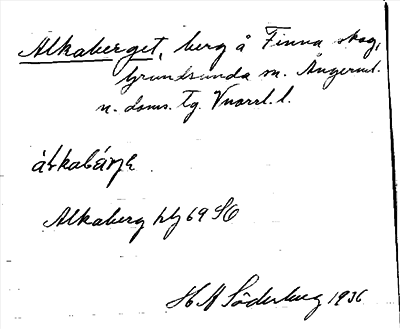 Alkaberget, berg å Finna skog,
Grundsunda sn. Ångerml.
n. doms. tg. Vnorrl. l.
Alkaberg blj 69 SO
H A Söderberg 1936